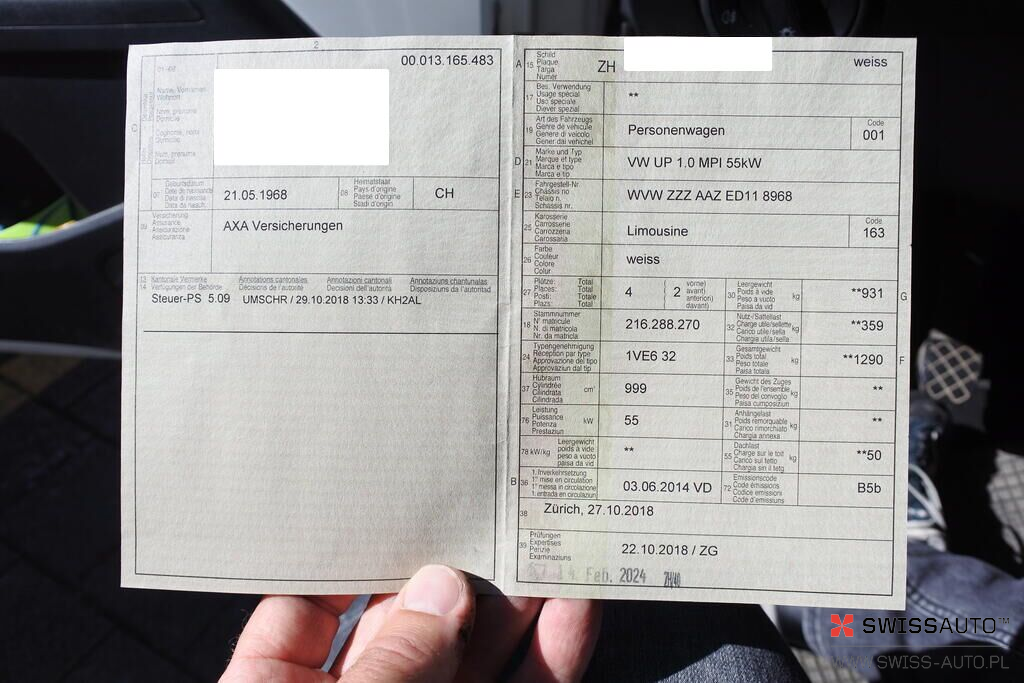 2
00.013.165.483
01-06
Name, Vornamen
Wohnort
Nom, prénoms
Domicile
Cognome, nomi
Domicilio
Num, prenums
Domicil
C
07
Geburtsdatum
Date de naissance
Data di nascita
Data da nasch.
21.05.1968
08
Heimatstaat
Pays d'origine
Paese d'origine
Stadi d'origin
CH
09
Versicherung
Assurance
Assicurazione
Assicuranza
AXA Versicherungen
13
14
Kantonale Vermerke
Verfügungen der Behörde
Annotations cantonales
Décisions de l'autorité
Annotazioni cantonali
Decisioni dell'autorità
Annotaziuns chantunalas
Disposiziuns da l'autoritad
Steuer-PS 5.09 UMSCHR / 29.10.2018 13:33 / KH2AL
A
15
Schild
Plaque
Targa
Numer
ZH
weiss
17
Bes. Verwendung
Usage spécial
Uso speciale
Diever spezial
**
19
Art des Fahrzeugs
Genre de véhicule
Genere di veicolo
Gener dal vehichel
Personenwagen
Code
001
D
21
Marke und Typ
Marque et type
Marca e tipo
Marca e tip
VW UP 1.0 MPI 55kW
E
23
Fahrgestell-Nr.
Châssis no
Telaio n.
Schassis nr.
WVW ZZZ AAZ ED11 8968
25
Karosserie
Carrosserie
Carrozzeria
Carossaria
Limousine
Code
163
26
Farbe
Couleur
Colore
Colur
weiss
27
Plätze: Total
Places: Total
Posti: Totale
Plazs: Total
4 ( 2 vorne)
avant)
anteriori)
davant)
30
Leergewicht
Poids à vide
Peso a vuoto
Paisa da vid
kg
**931
G
18
Stammnummer
N° matricule
N. di matricola
Nr. da matricla
216.288.270
32
Nutz-/Sattellast
Charge utile/sellette
Carico utile/sella
Chargia utila/sella
kg
**359
24
Typengenehmigung
Réception par type
Approvazione del tipo
Approvaziun dal tip
1VE6 32
33
Gesamtgewicht
Poids total
Peso totale
Paisa totala
kg
**1290
F
37
Hubraum
Cylindrée
Cilindrata
Cilindrada
cm³
999
35
Gewicht des Zuges
Poids de l'ensemble
Peso del convoglio
Paisa cumposiziun
kg
**
76
Leistung
Puissance
Potenza
Prestaziun
kW
55
31
Anhängelast
Poids remorquable
Carico rimorchiato
Chargia annexa
kg
**
78 kW/kg
Leergewicht
poids à vide
peso a vuoto
paisa da vid
**
55
Dachlast
Charge sur le toit
Carico sul tetto
Chargia sin il tetg
kg
**50
B
36
1. Inverkehrsetzung
1re mise en circulation
1a messa in circolazione
1. entrada en circulaziun
03.06.2014 VD
72
Emissionscode
Code émissions
Codice emissioni
Code d'emissiuns
B5b
38
Zürich, 27.10.2018
39
Prüfungen
Expertises
Perizie
Examinaziuns
22.10.2018 / ZG
Feb. 2024
SWISSAUTO™
WWW.SWISS-AUTO.PL